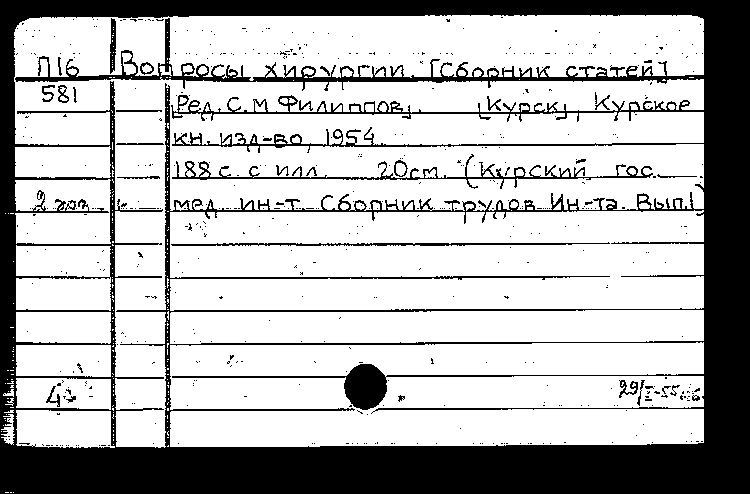 П16 Вопросы хирургии. [Сборник статей]
581 [Ред. С. М Филиппов]. [Курск], Курское
кн. изд-во, 1954.
188 с. с илл. 20 см. (Курский гос.
2 экз. мед. ин-т. Сборник трудов Ин-та. Вып. 1)
29/I-55